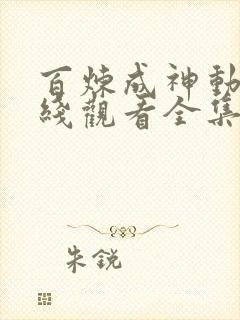 百炼成神動
綫觀看全集
朱銳